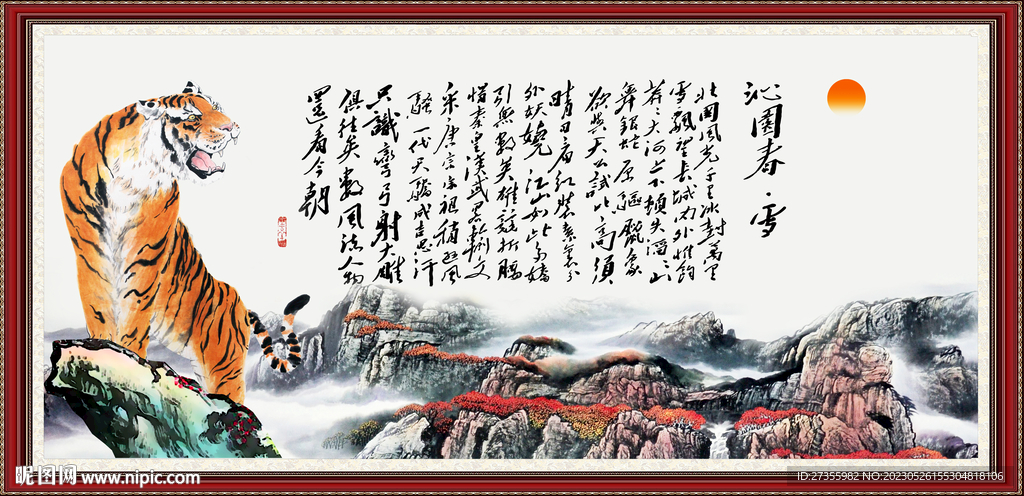 沁園春 雪
北國風光千里冰封萬里
雪飄望長城內外惟餘
莽莽大河上下頓失滔滔山
舞銀蛇原驅蠟象
欲與天公試比高須
晴日看紅裝素裹分
外妖嬈江山如此多嬌
引無數英雄競折腰
惜秦皇漢武略輸文
采唐宗宋祖稍遜風
騷一代天驕成吉思汗
只識彎弓射大雕
俱往矣數風流人物
還看今朝
昵图网 www.nipic.com
ID:27355982 NO:20230526155304818106